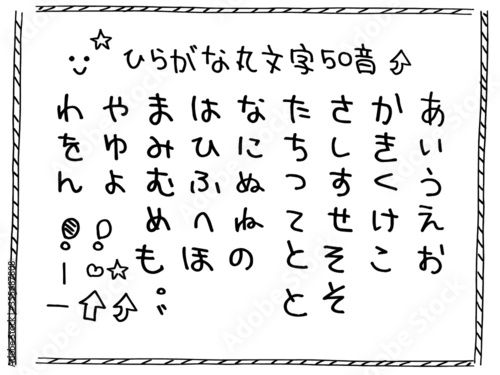 ひらがな丸文字50音
あいうえお
かきくけこ
さしすせそそ
たちつてとと
なにぬねの
はひふへほ
まみむめも゜゛
やゆよ！
わをん！｜ー
Adobe Stock